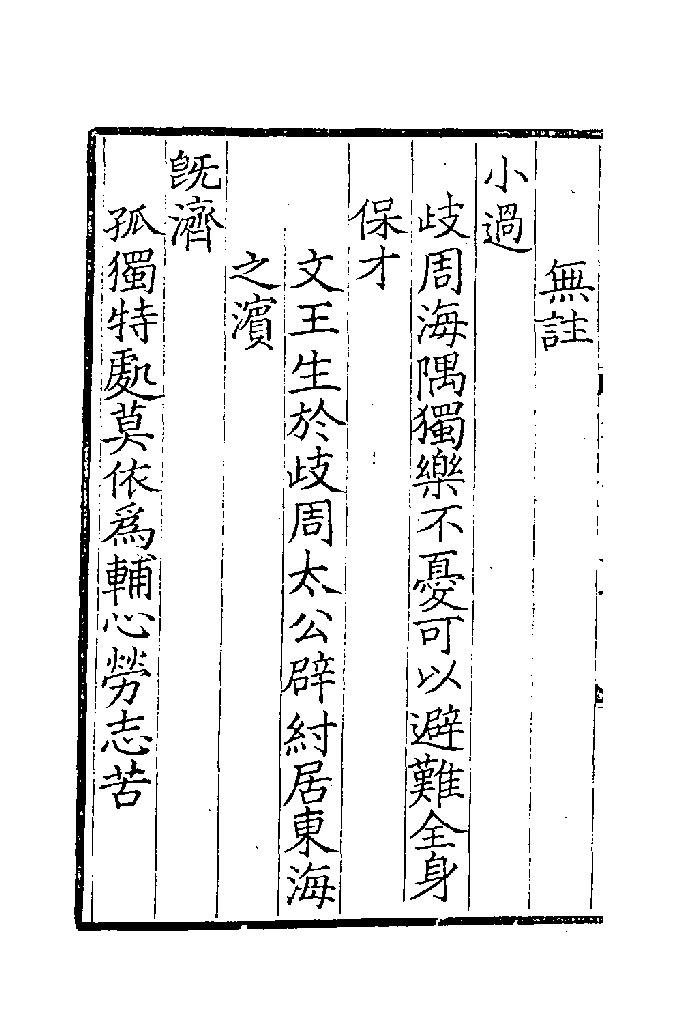 無註
小過
歧周海隅獨樂不憂可以避難全身
保才
文王生於歧周太公辟紂居東海
之濵
旣濟
孤獨特處莫依爲輔心勞志苦